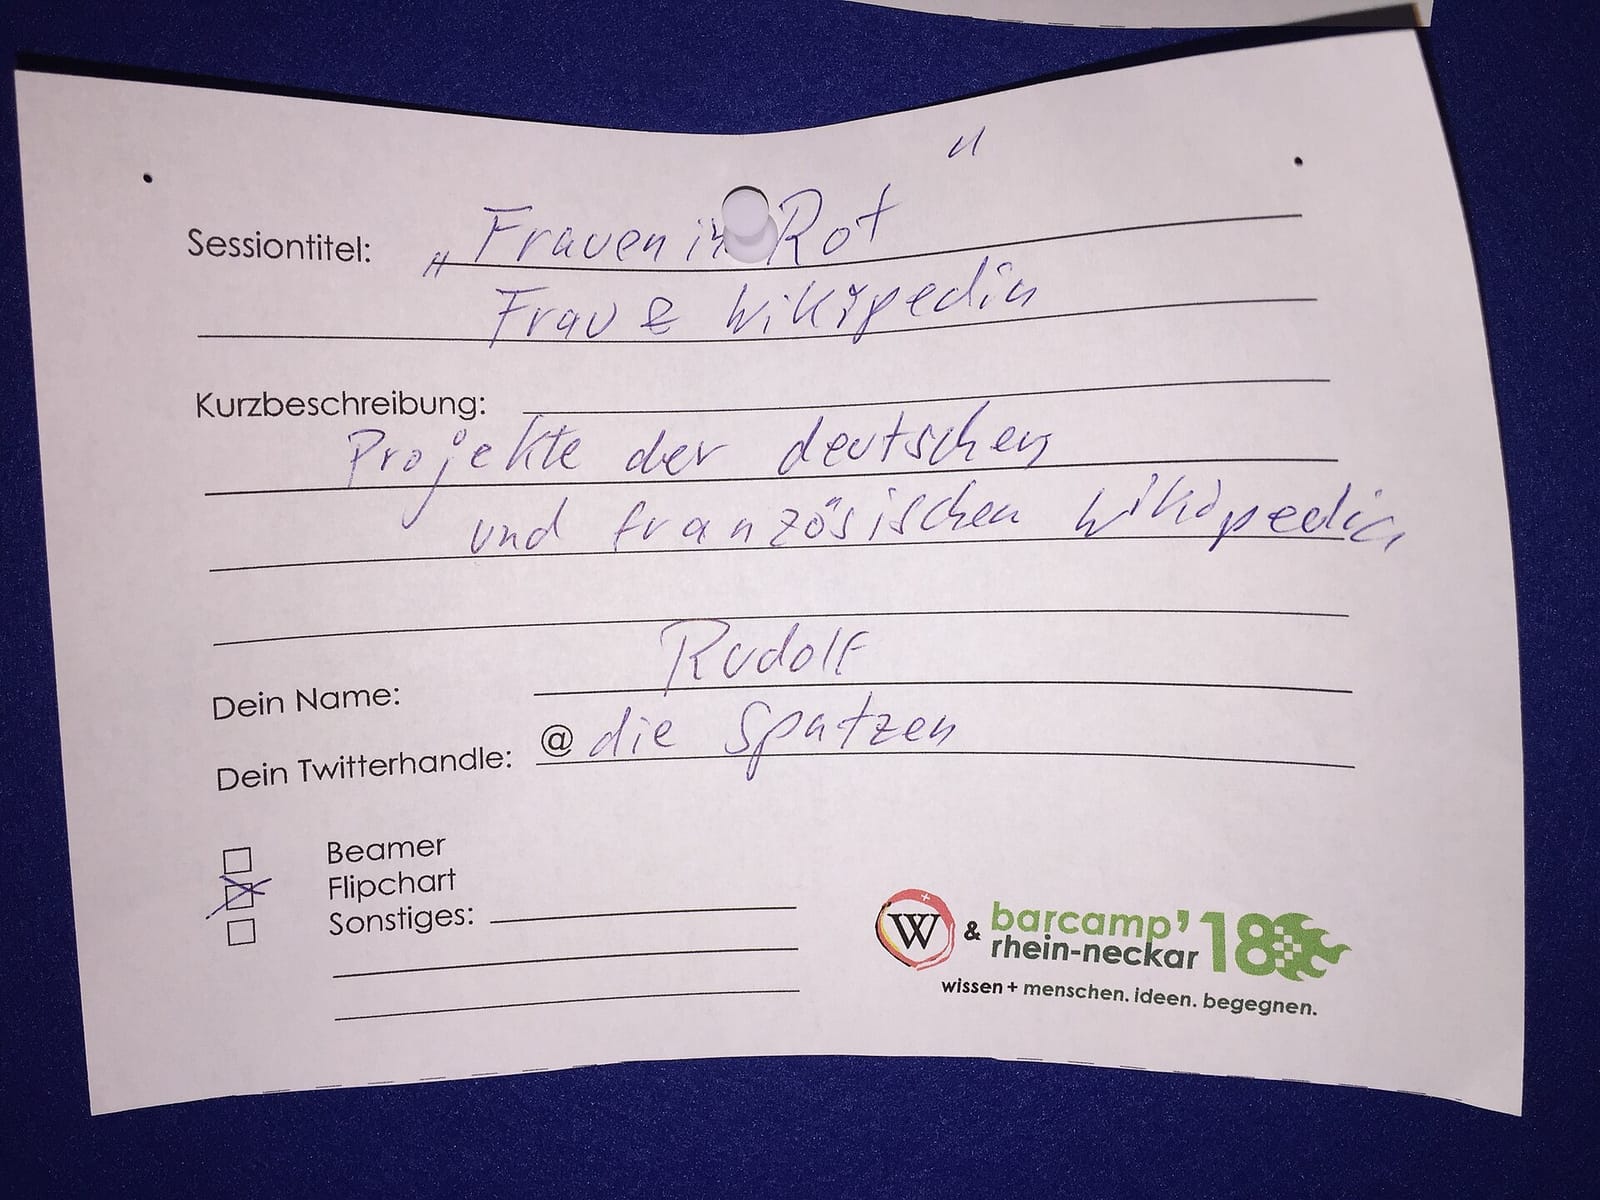 Sessiontitel: „Frauen in Rot"
Frau & Wikipedia
Kurzbeschreibung:
Projekte der deutschen
und französischen Wikipedia
Dein Name: Rudolf
Dein Twitterhandle: @ die Spatzen
Beamer
Flipchart
Sonstiges:
W & barcamp'18
rhein-neckar
wissen + menschen. ideen. begegnen.